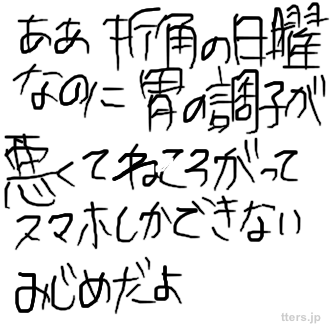 ああ 折角の日曜
なのに 胃の調子が
悪くてねころがって
スマホしかできない
みじめだよ
tters.jp